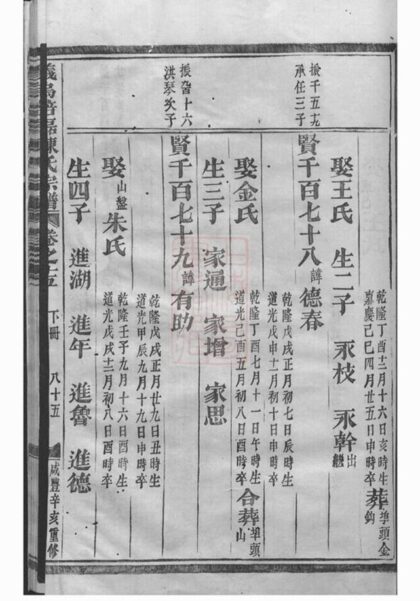 乾隆丁酉十二月十六日亥時生
嘉慶己巳四月廿五日申時卒
葬準頭金鈎
娶王氏 生二子 永枝 永幹出繼
振千五十
承任三子
賢千百七十八諱德春
乾隆戊戌正月初七日辰時生
道光戊申十二月初十日申時卒
娶金氏
乾隆丁酉七月十一日午時生
道光己酉五月初八日酉時卒
合葬準頭山
生三子 家通 家增 家思
振百十六
洪琴次子
賢千百七十九諱有助
乾隆戊戌正月廿九日丑時生
道光甲辰九月十九日申時卒
娶山盤朱氏
乾隆壬子九月十六日酉時生
道光戊戌十二月初八日酉時卒
生四子 進湖 進年 進魯 進德
義烏 陳氏宗譜 卷之五 下冊 八十五 咸豐辛亥重修